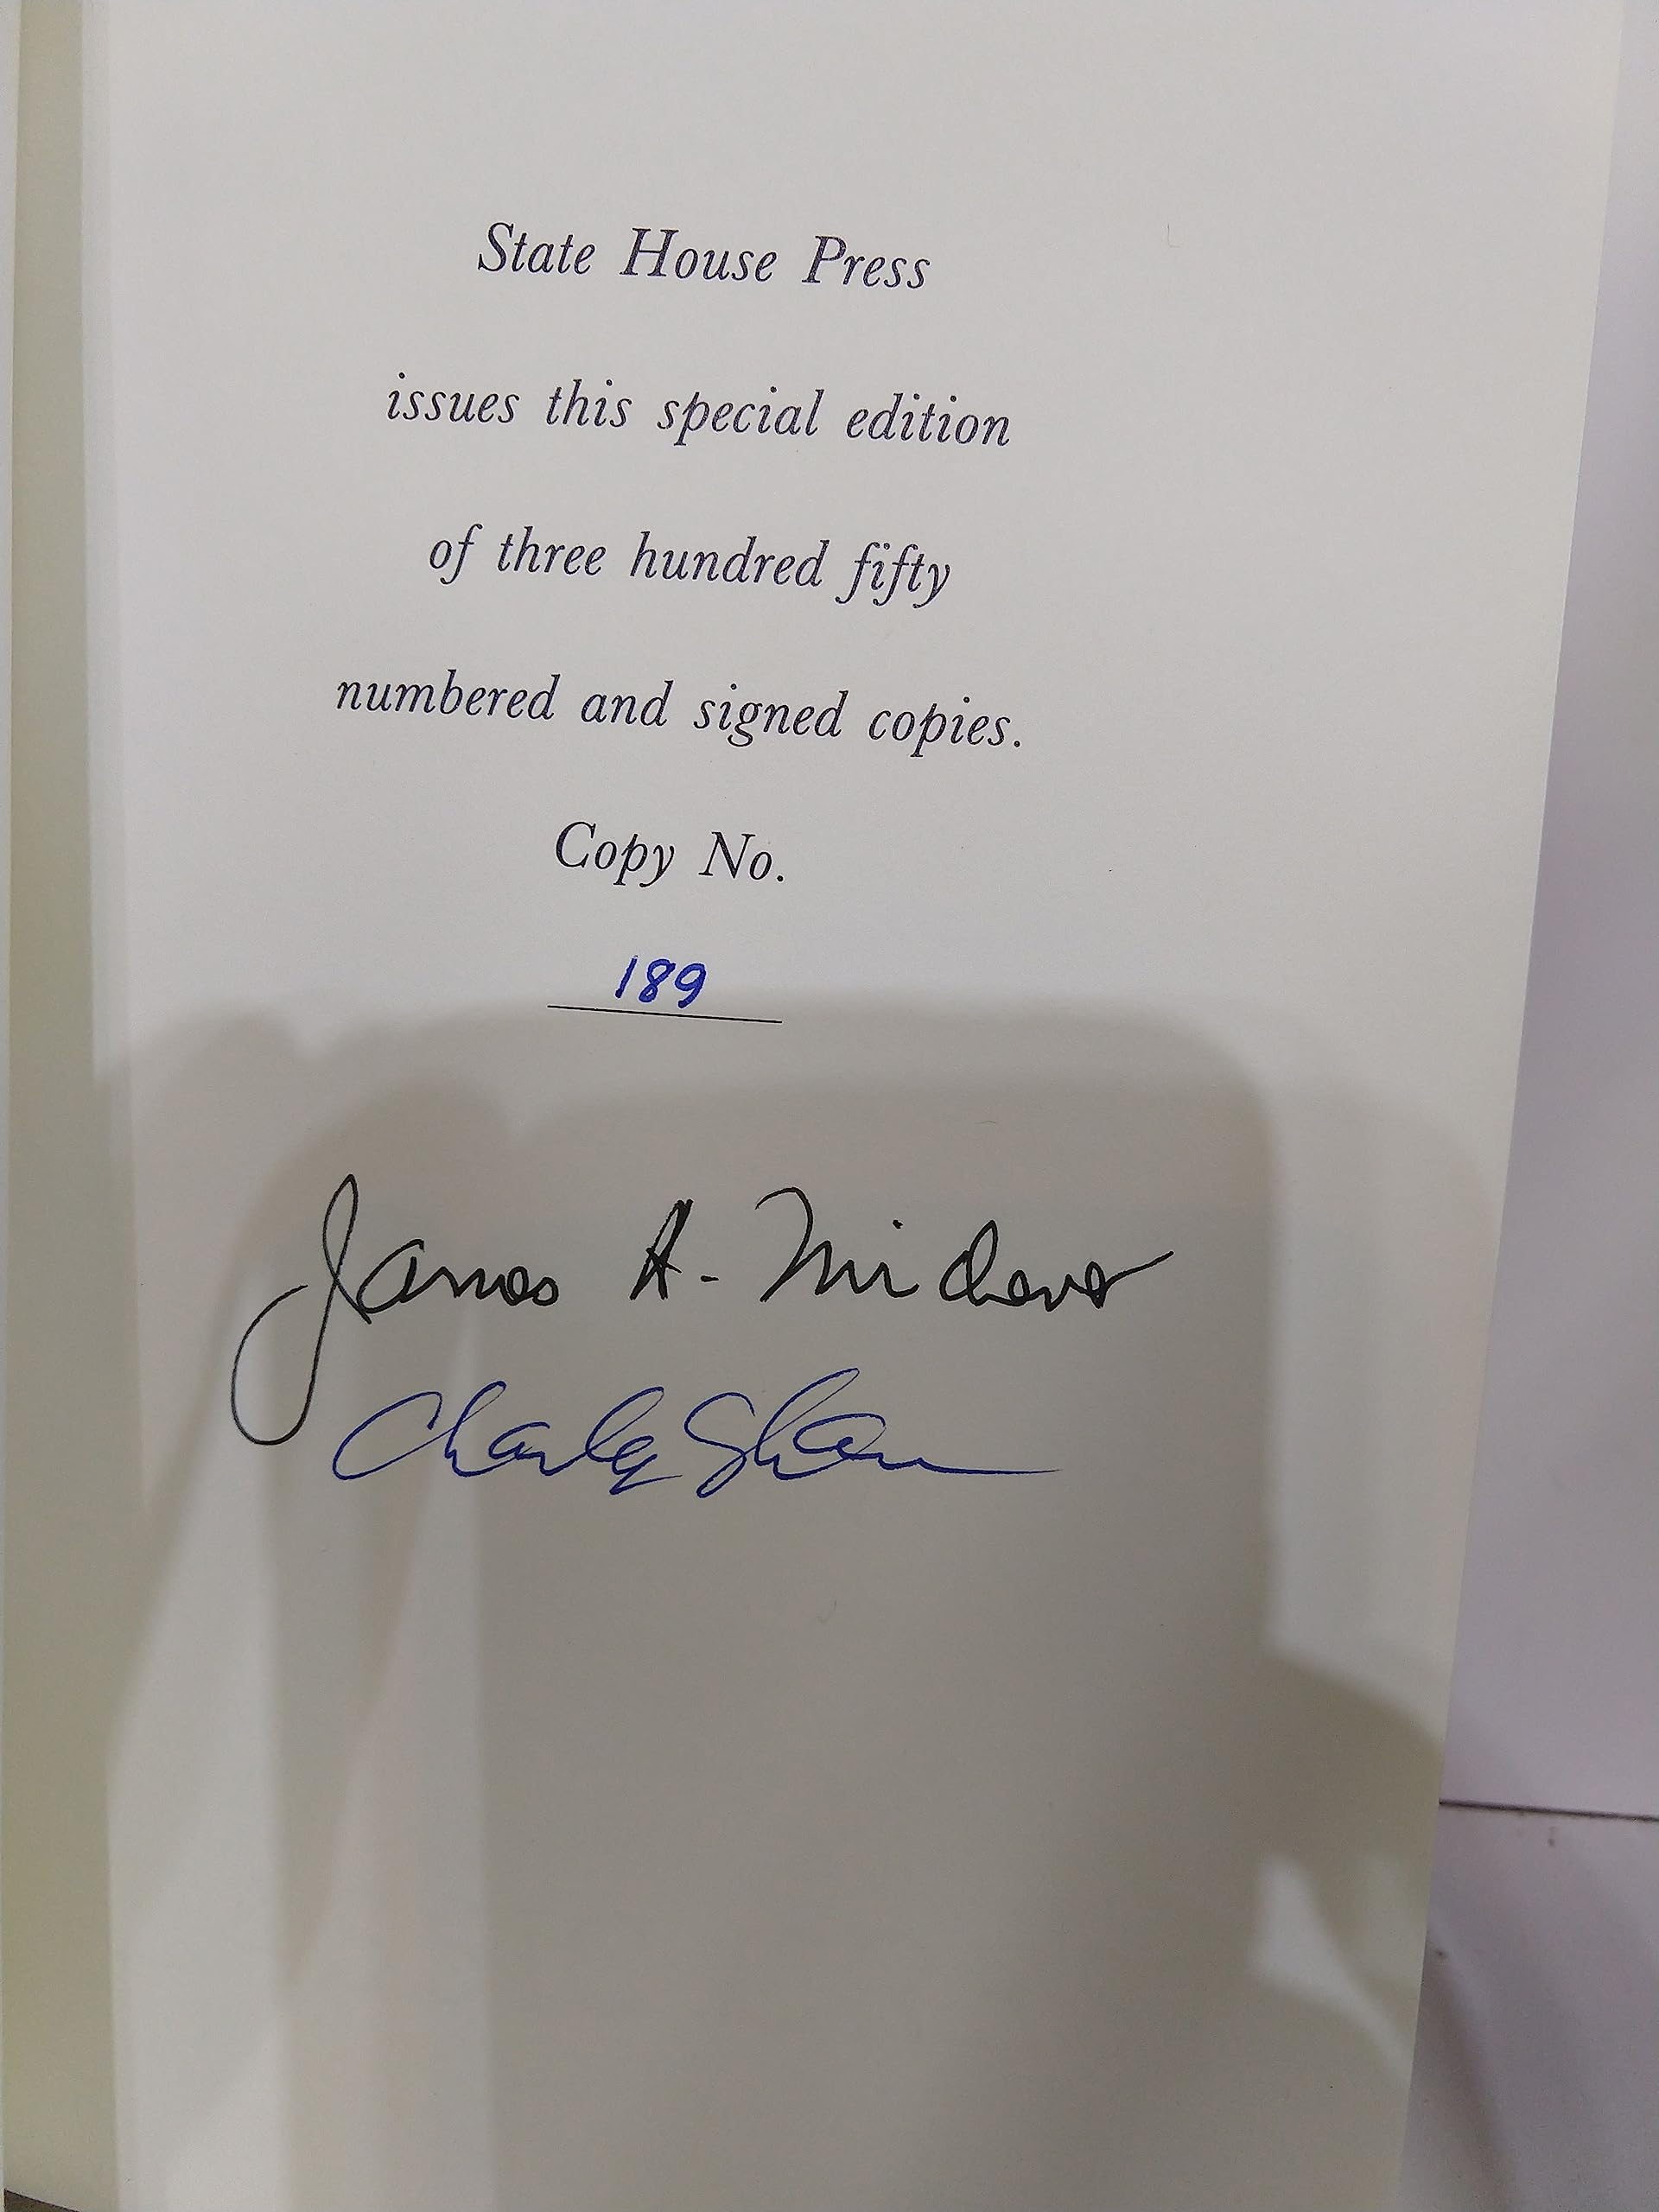 State House Press
issues this special edition
of three hundred fifty
numbered and signed copies.
Copy No.
189
James A. Michener
Charles Shaw